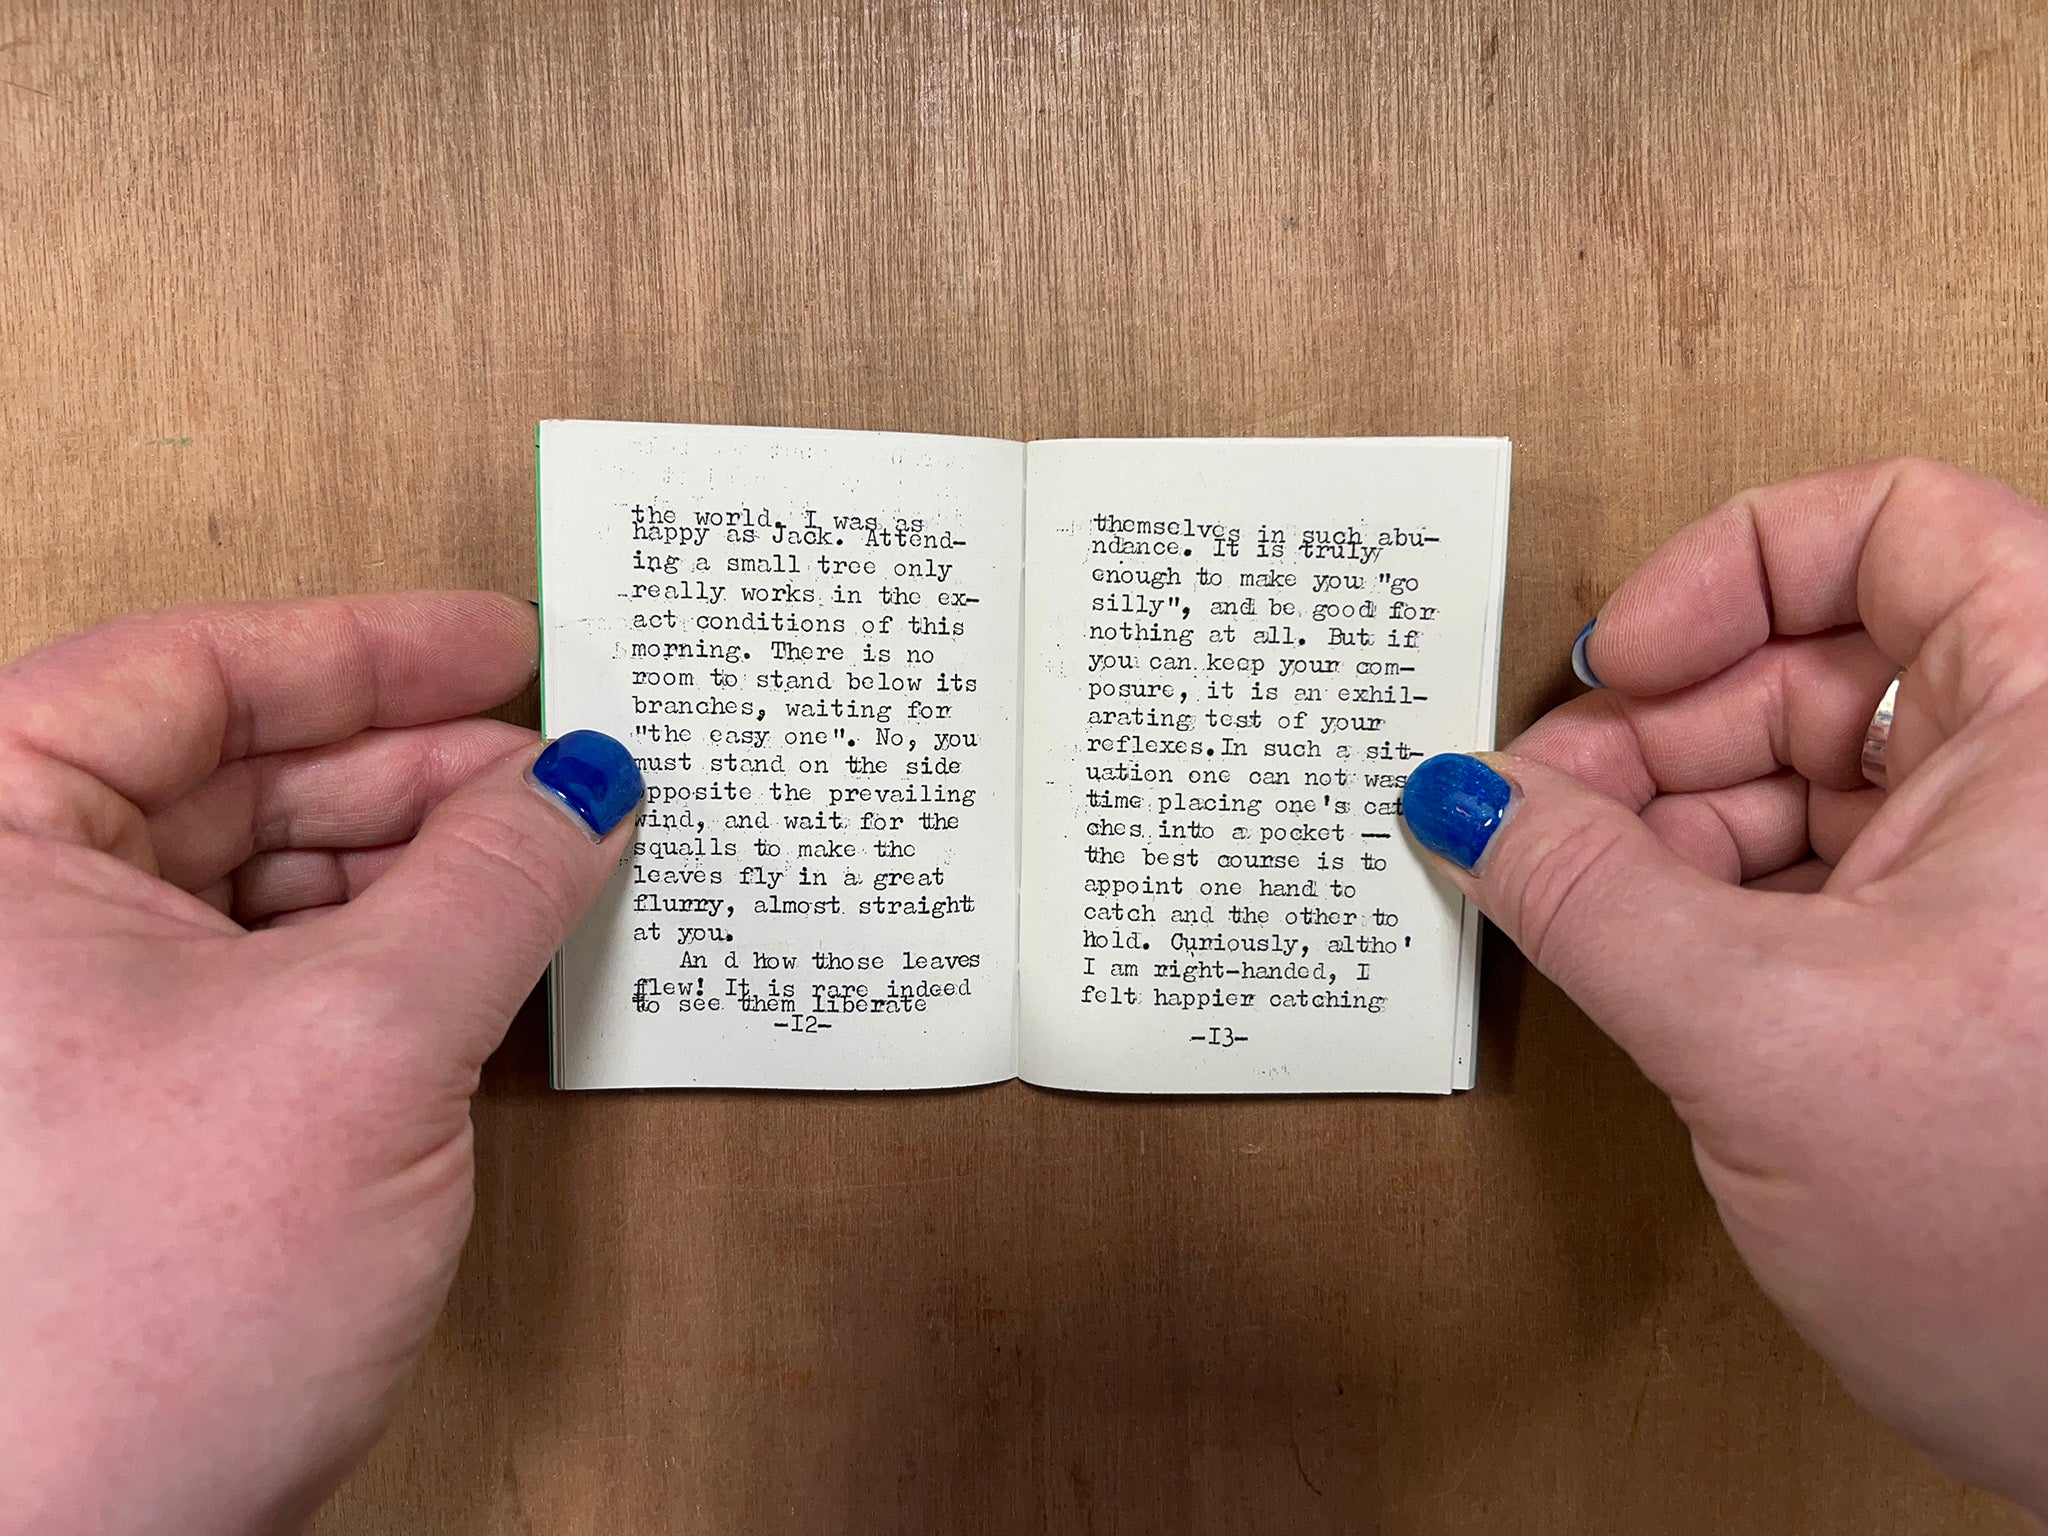 the world. I was as
happy as Jack. Attend-
ing a small tree only
really works in the ex-
act conditions of this
morning. There is no
room to stand below its
branches, waiting for
"the easy one". No, you
must stand on the side
opposite the prevailing
wind, and wait for the
squalls to make the
leaves fly in a great
flurry, almost straight
at you.
An d how those leaves
flew! It is rare indeed
to see them liberate
-I2-
themselves in such abu-
ndance. It is truly
enough to make you "go
silly", and be good for
nothing at all. But if
you can keep your com-
posure, it is an exhil-
arating test of your
reflexes.In such a sit-
uation one can not was
time placing one's cat
ches into a pocket —
the best course is to
appoint one hand to
catch and the other to
hold. Curiously, altho'
I am right-handed, I
felt happier catching
-I3-